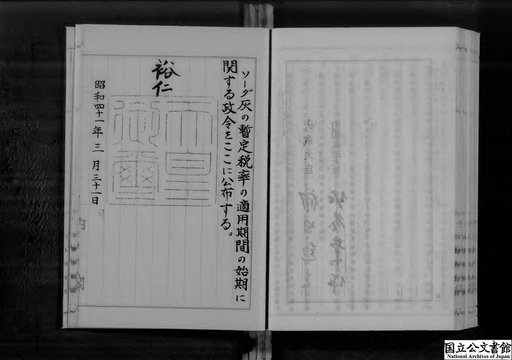 ソーダ灰の暫定税率の適用期間の始期に
関する政令をここに公布する。
裕仁
天皇御璽
昭和四十一年三月三十一日
国立公文書館
National Archives of Japan